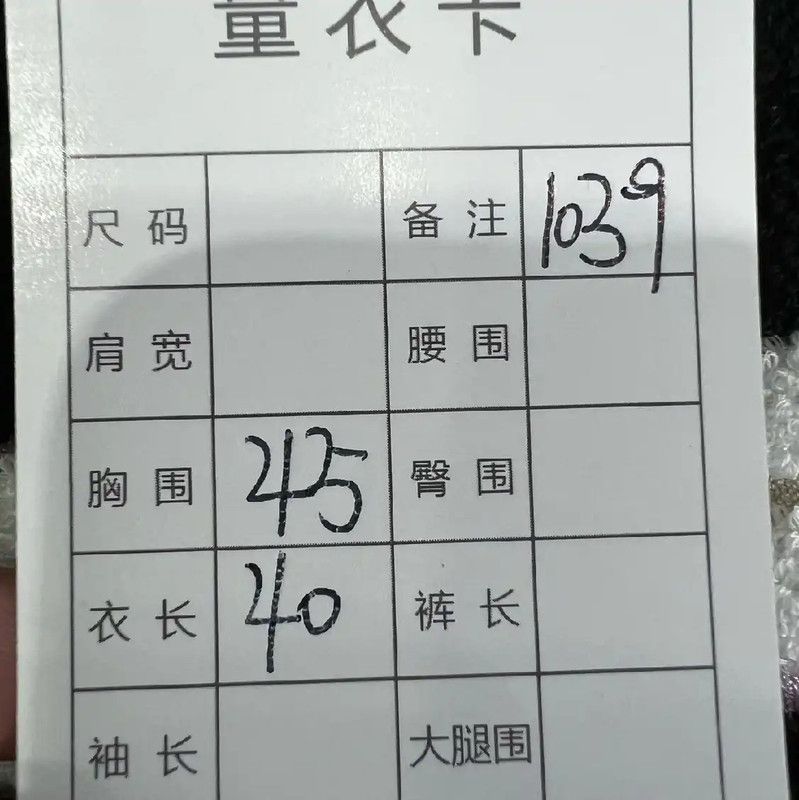 量衣卡
尺码 备注 1039
肩宽 腰围
胸围 45 臀围
衣长 40 裤长
袖长 大腿围